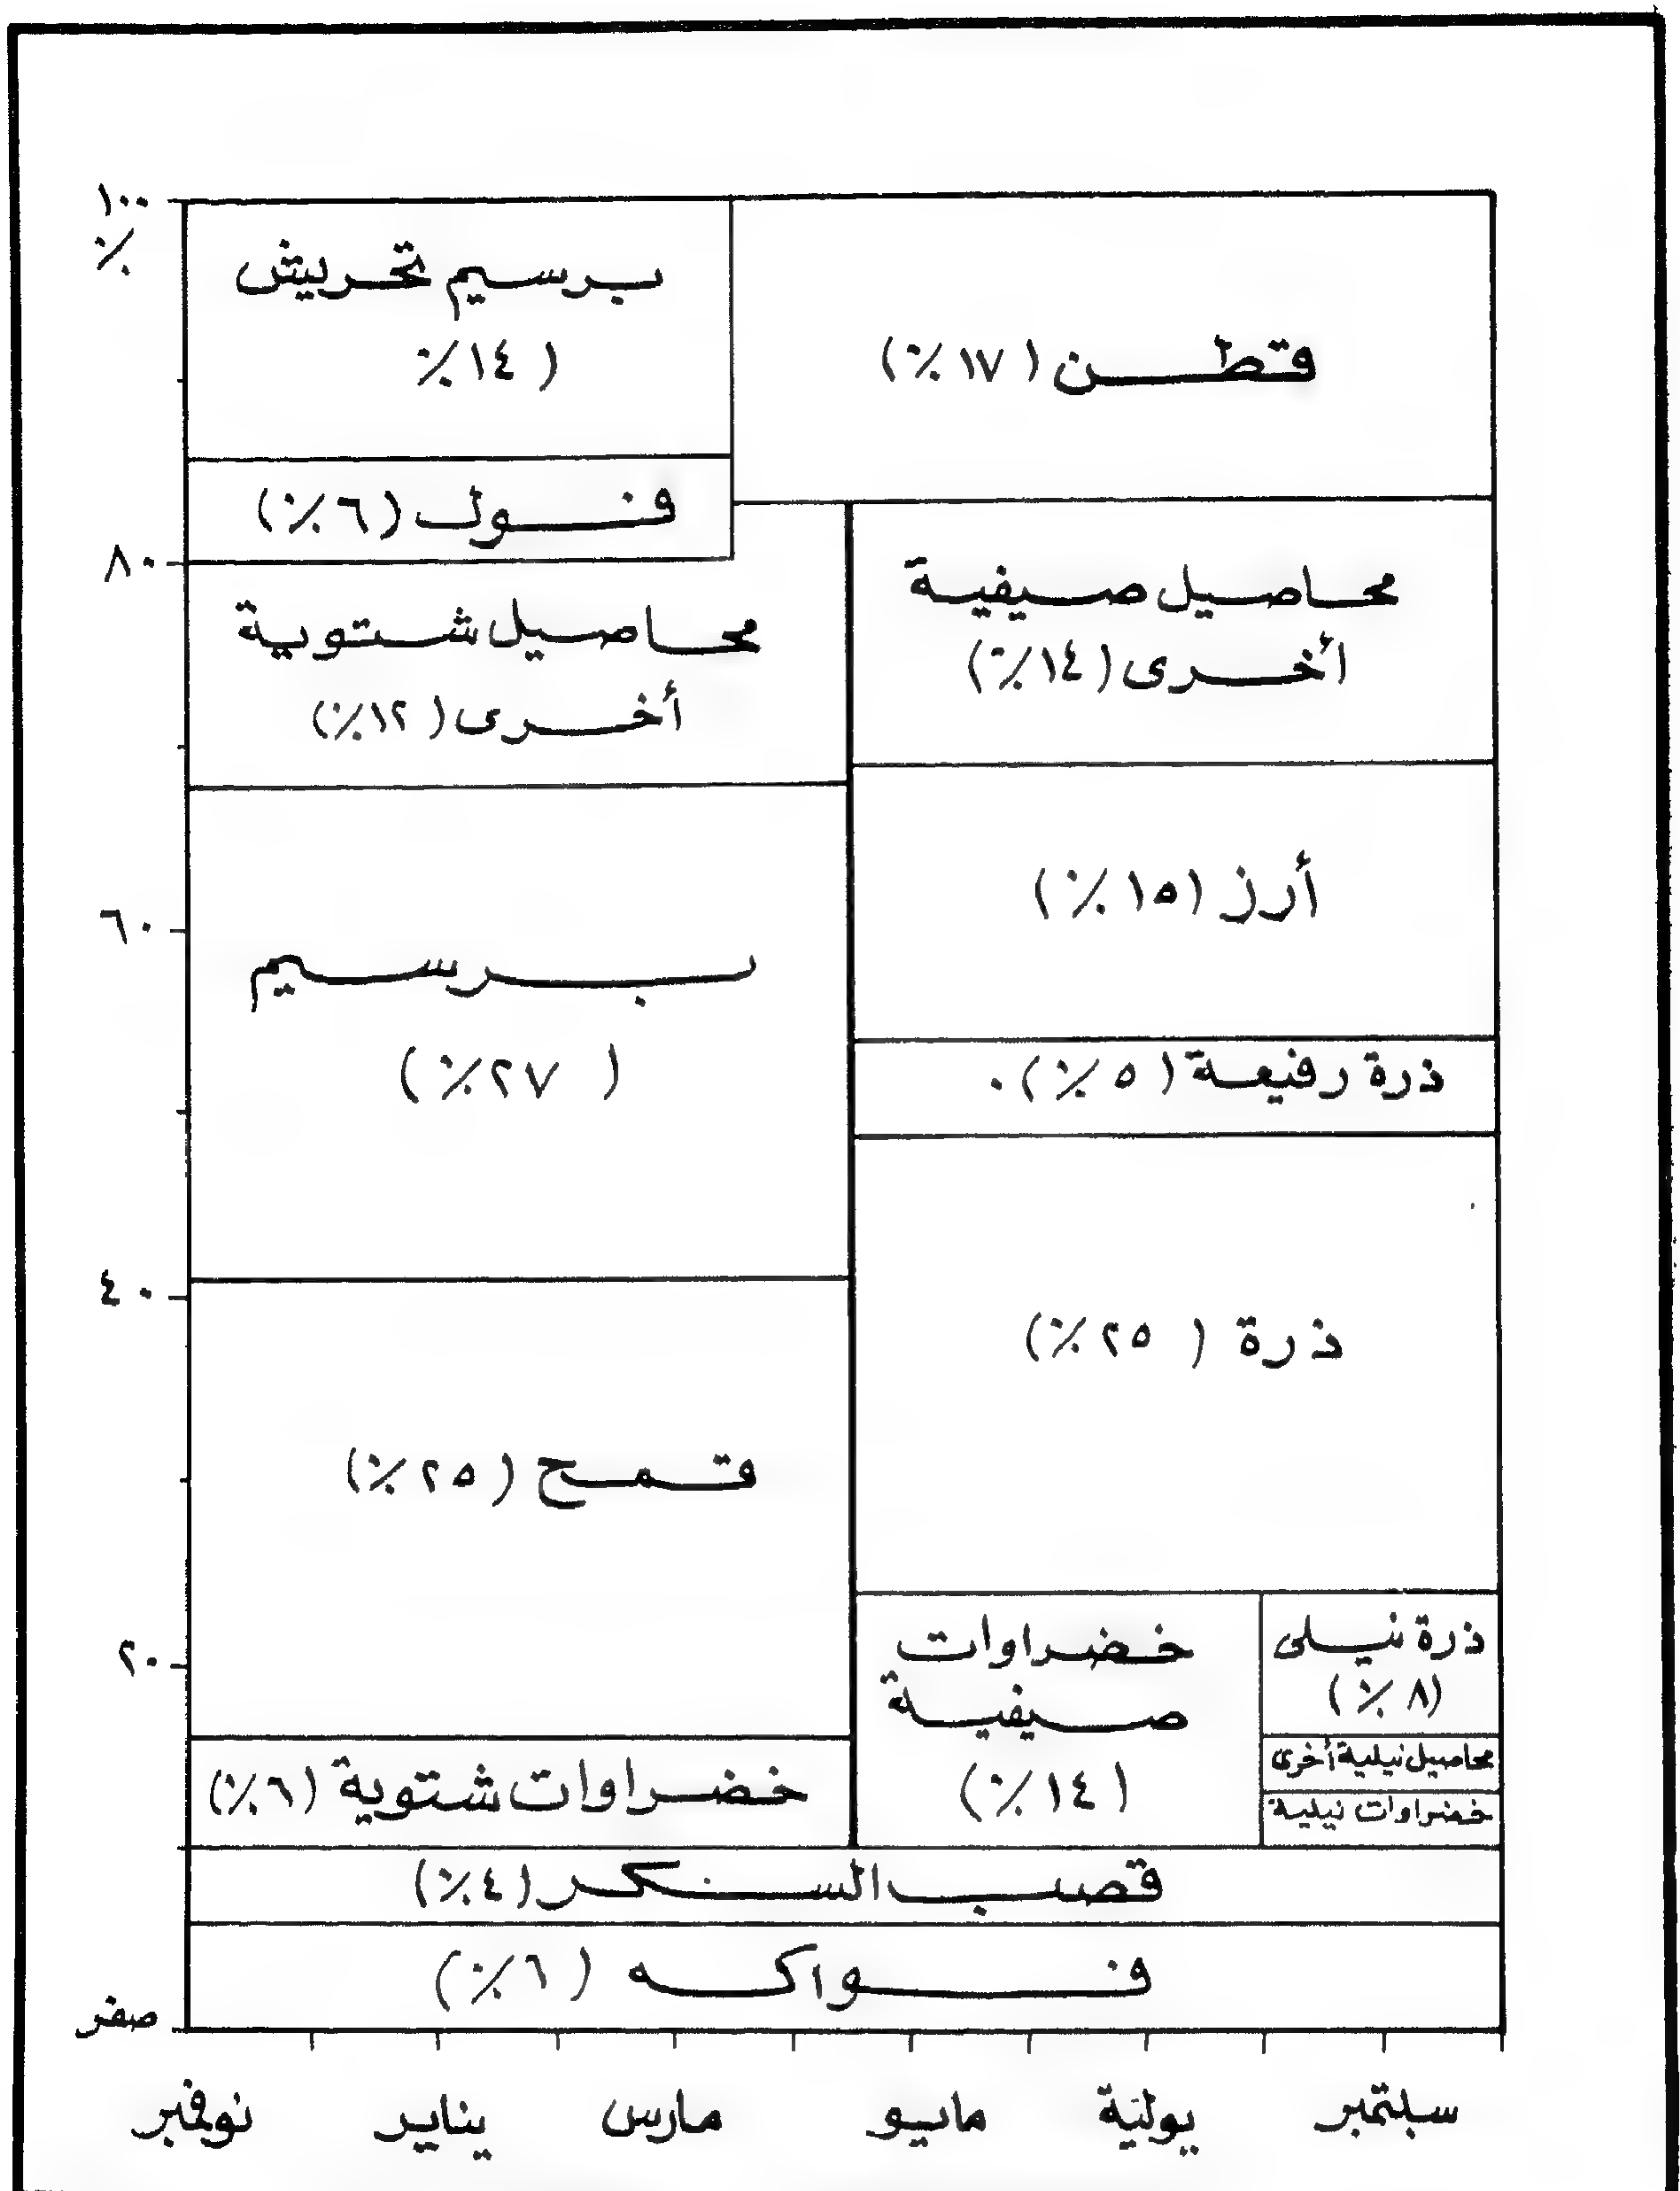 ١٠٠
٪
٨٠
٦٠
٤٠
٢٠
صفر
برسيم تحريش
(١٤٪
قطن (١٧٪)
فول (٦٪)
محاصيل شتوية
أخرى (١٢٪)
محاصيل صيفية
أخرى (١٤٪)
أرز (١٥٪)
برسيم
(٢٧٪)
ذرة رفيعة (٥٪).
ذرة (٢٥٪)
قمح (٢٥٪)
خضراوات
صيفية
(١٤٪)
ذرة نيلى
(٨٪)
محاصيل نيلية أخرى
خضراوات نيلية
خضراوات شتوية (٦٪)
قصب السكر (٤٪)
فواكه (٦٪)
نوفمبر يناير مارس مايو يولية سبتمبر